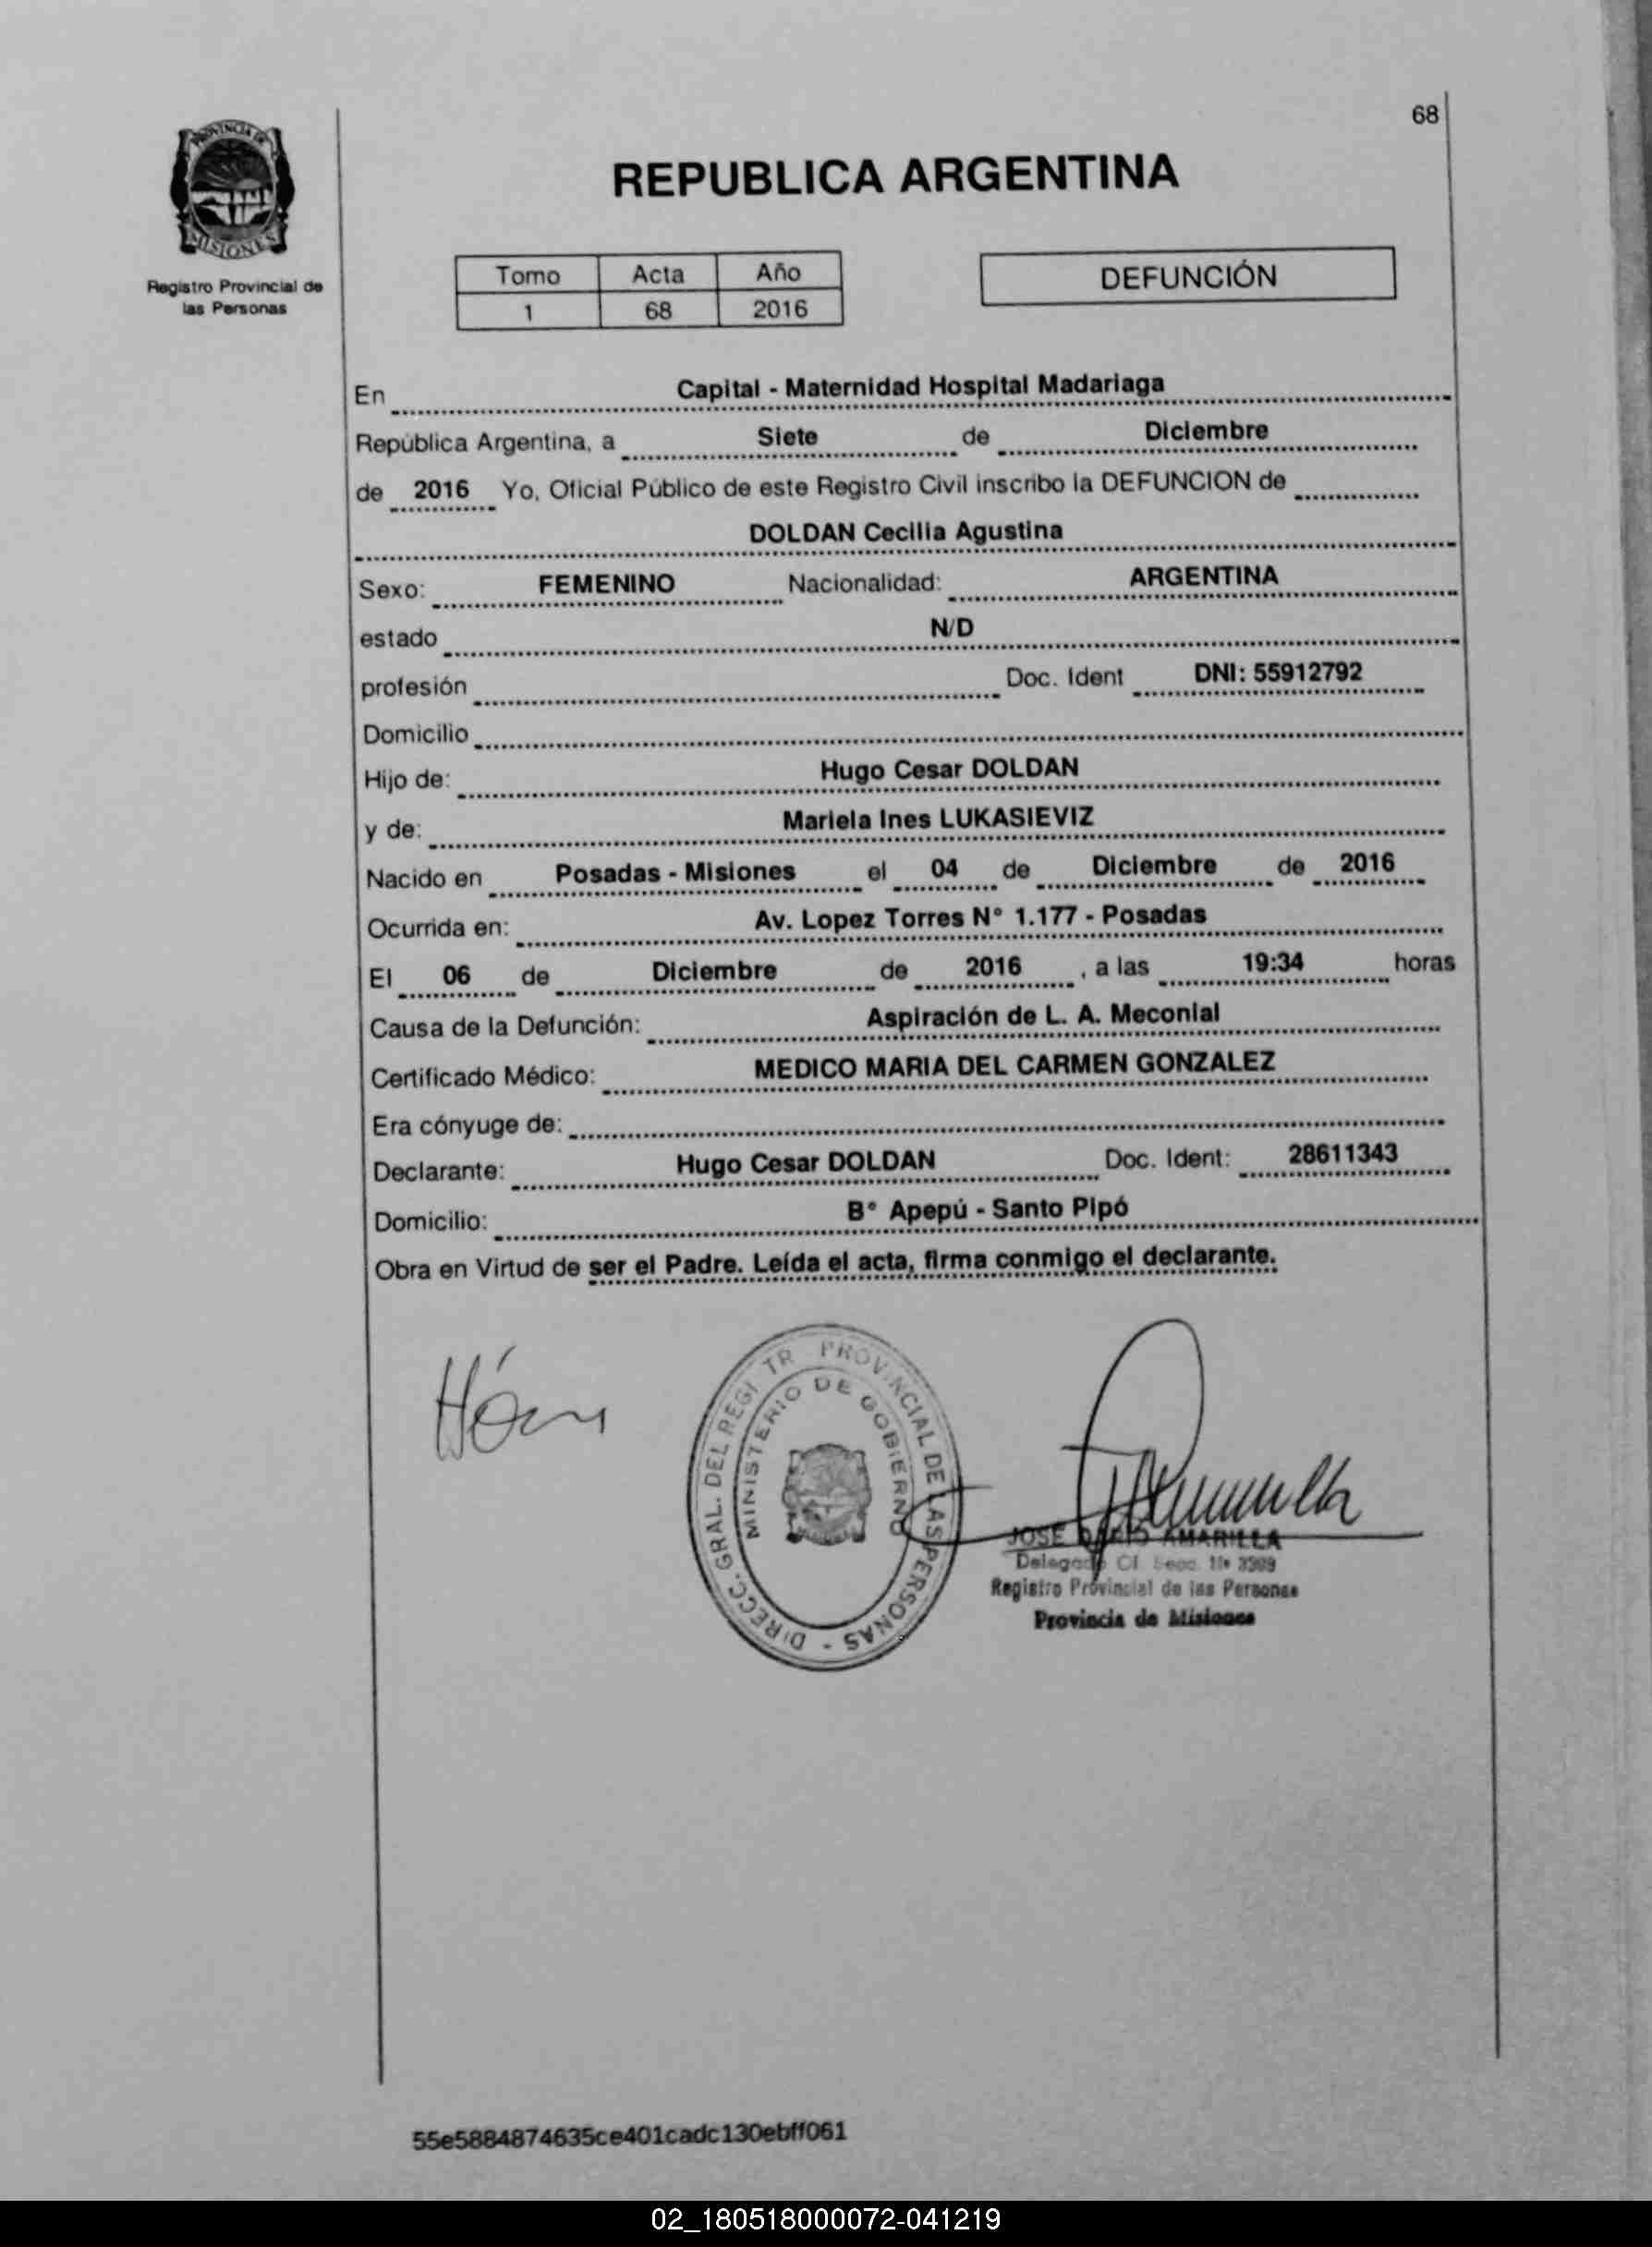 68
PROVINCIA DE
MISIONES
Registro Provincial de
las Personas
REPUBLICA ARGENTINA
Tomo Acta Año
1 68 2016
DEFUNCIÓN
En Capital - Maternidad Hospital Madariaga
República Argentina, a Siete de Diciembre
de 2016 Yo, Oficial Público de este Registro Civil inscribo la DEFUNCION de
DOLDAN Cecilia Agustina
Sexo: FEMENINO Nacionalidad: ARGENTINA
estado N/D
profesión Doc. Ident DNI: 55912792
Domicilio
Hijo de: Hugo Cesar DOLDAN
y de: Mariela Ines LUKASIEVIZ
Nacido en Posadas - Misiones el 04 de Diciembre de 2016
Ocurrida en: Av. Lopez Torres N° 1.177 - Posadas
El 06 de Diciembre de 2016 , a las 19:34 horas
Causa de la Defunción: Aspiración de L. A. Meconial
Certificado Médico: MEDICO MARIA DEL CARMEN GONZALEZ
Era cónyuge de:
Declarante: Hugo Cesar DOLDAN Doc. Ident: 28611343
Domicilio: B° Apepú - Santo Pipó
Obra en Virtud de ser el Padre. Leída el acta, firma conmigo el declarante.
DIRECC. GRAL. DEL REGI TR PROVINCIAL DE LAS PERSONAS -
MINISTERIO DE GOBIERNO
JOSE AMARILLA
Registro Provincial de las Personas
Provincia de Misiones
55e5884874635ce401cadc130ebff061
02_180518000072-041219